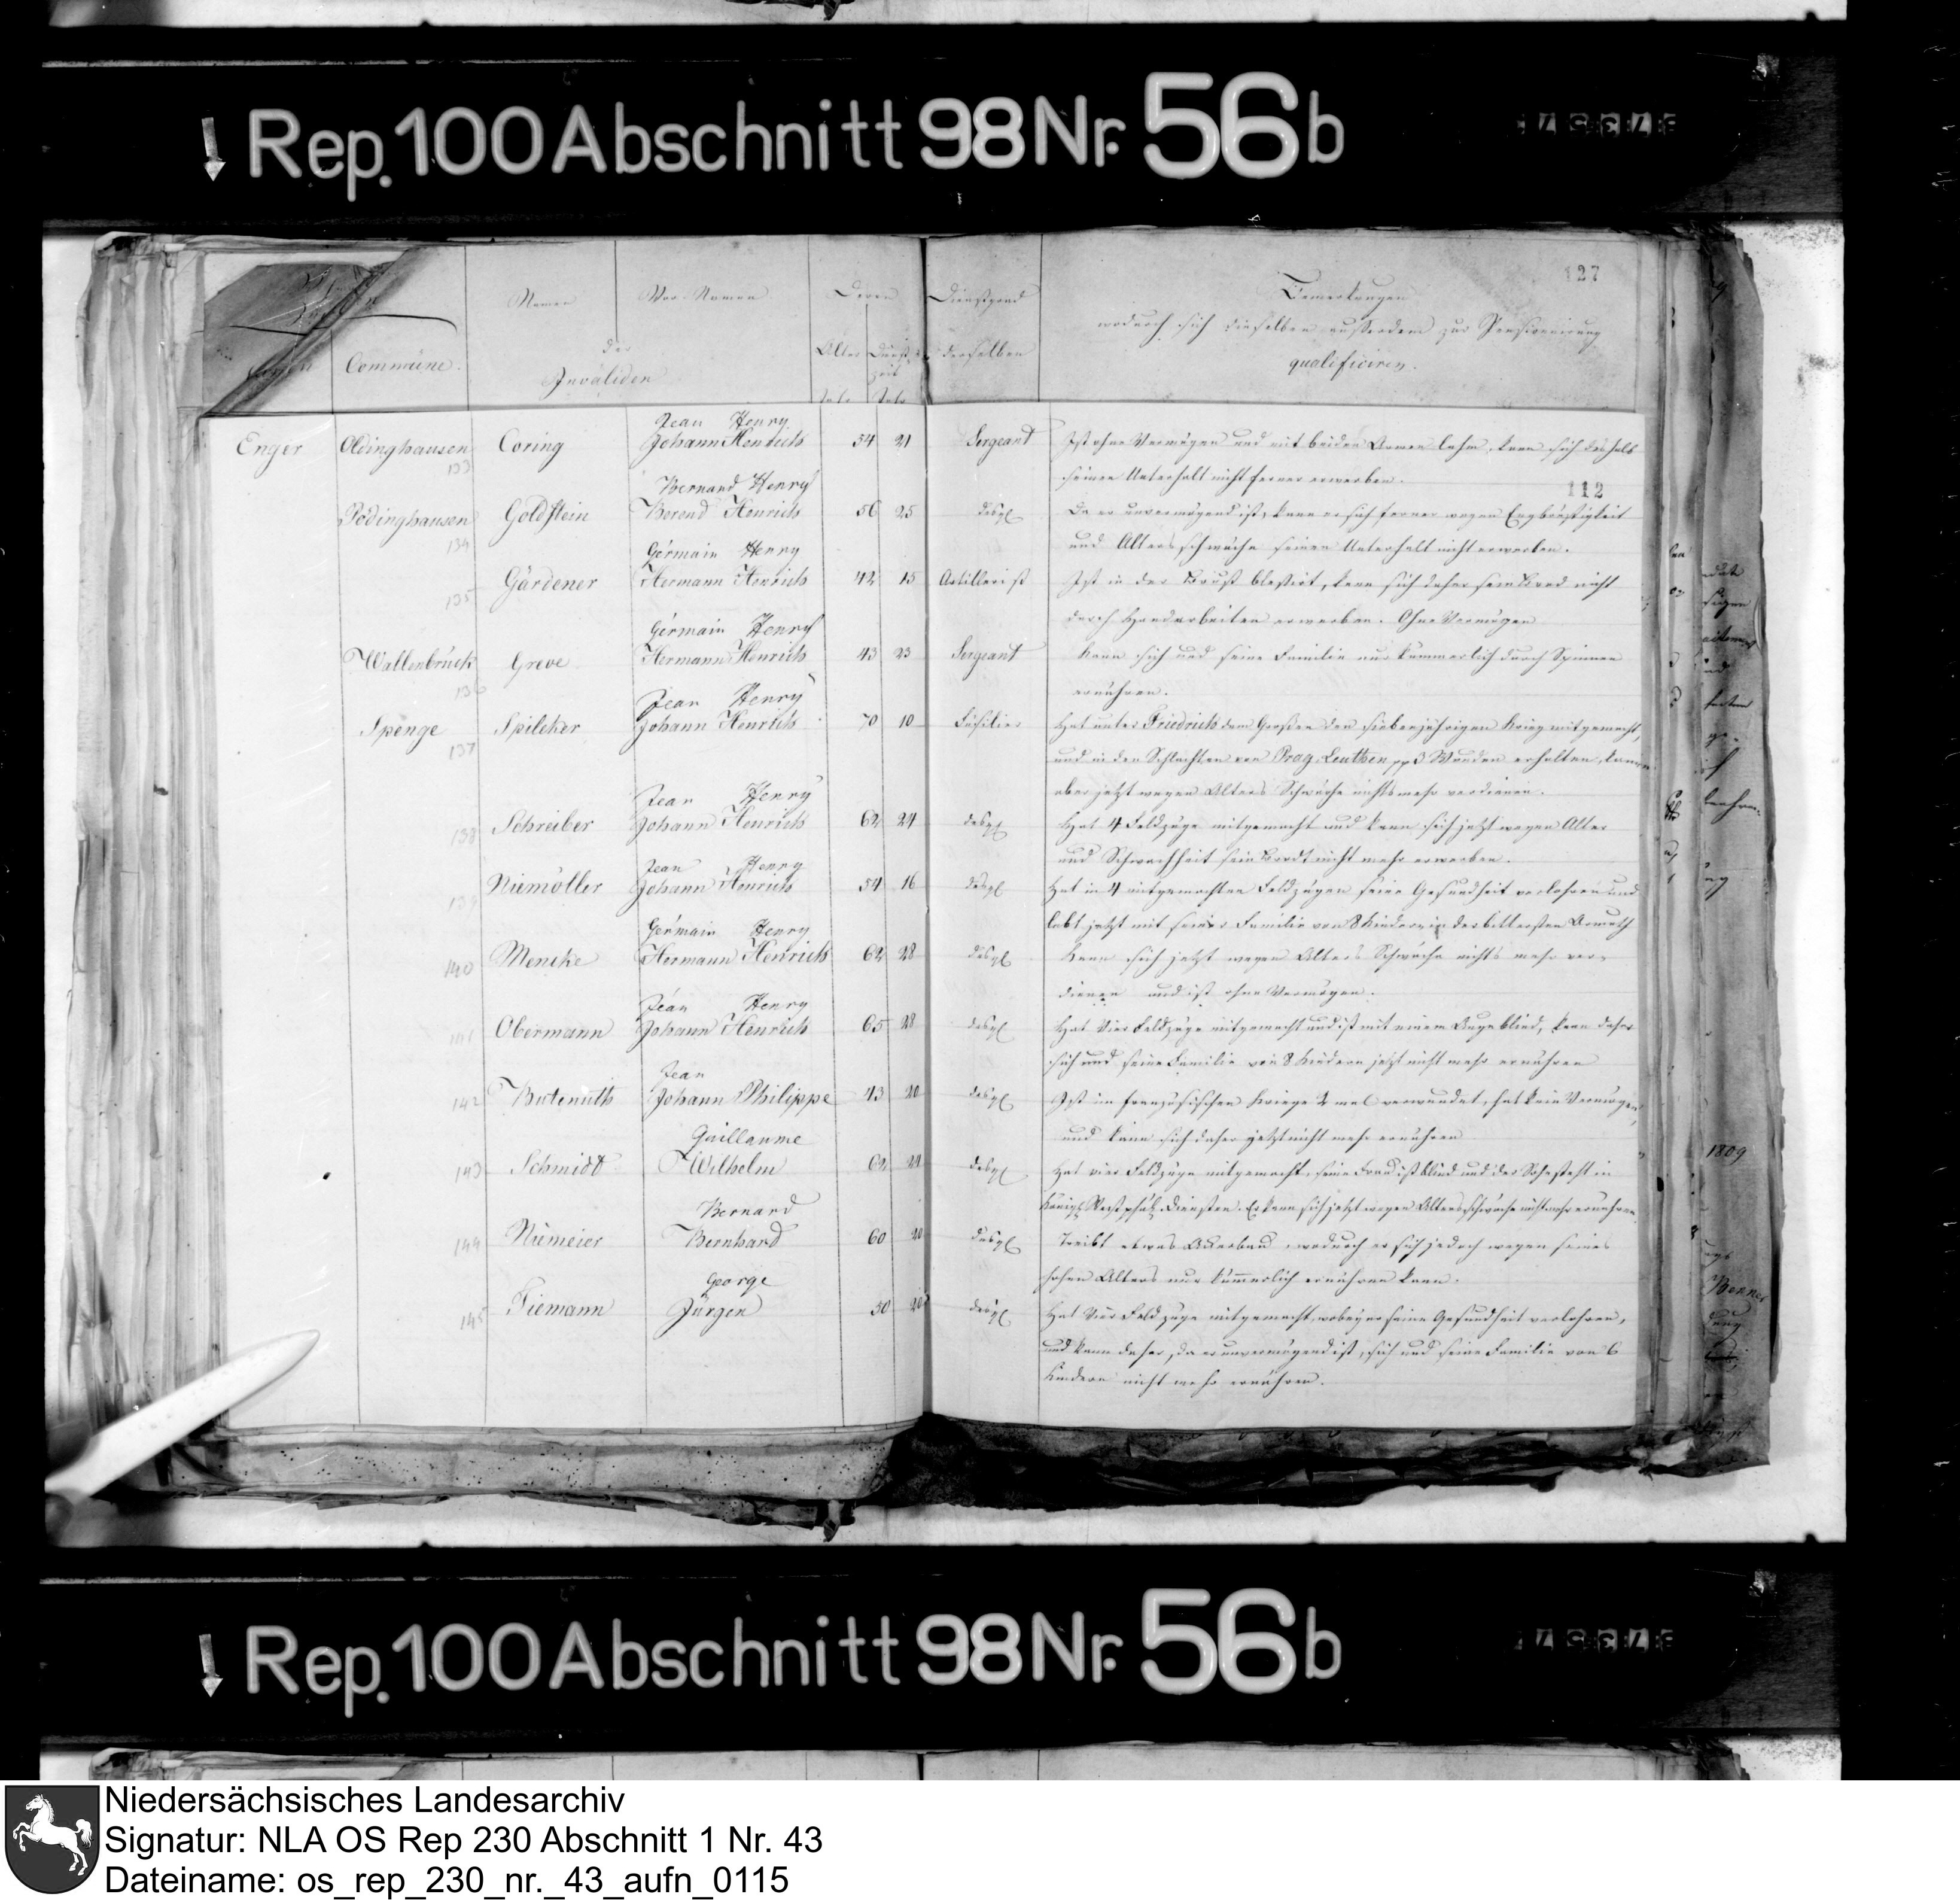 ↓ Rep. 100 Abschnitt 98 Nr. 56b
127
Namen Vor-Namen Deren Dienstgrad Bemerkungen
wodurch sich dieselben außerdem zur Pensionirung
Commüne. der Invaliden Alter Dienstzeit derselben qualificiren.
Jean Henry
Enger Oldinghausen Coring Johann Henrich 54 21 Sergeant Ist ohne Vermögen und mit beiden Armen lahm, kann sich deshalb
133 seinen Unterhalt nicht ferner erwerben.
Bernard Henry
112
Pödinghausen Goldstein Berend Henrich 56 25 desgl Da er unvermögend ist, kann er sich ferner wegen Engbrüstigkeit
134 und Altersschwäche seinen Unterhalt nicht erwerben.
Gérmain Henry
135 Gärdener Hermann Henrich 42 15 Artillerist Ist in der Brust bleßirt, kann sich daher sein Brod nicht
durch Handarbeiten erwerben. Ohne Vermögen
Gérmain Henry
Wallenbrück Greve Hermann Henrich 43 23 Sergeant Kann sich und seine Familie nur kümmerlich durch Spinnen
136 ernähren.
Jean Henry
Spenge Spilcker Johann Henrich 70 10 Füsilier Hat unter Friedrich dem Großen den siebenjährigen Krieg mitgemacht,
137 und in den Schlachten von Prag, Leuthen pp 3 Wunden erhalten, kann
aber jetzt wegen Alters Schwäche nichts mehr verdienen.
Jean Henry
138 Schreiber Johann Henrich 62 24 desgl Hat 4 Feldzüge mitgemacht und kann sich jetzt wegen Alter
und Schwachheit sein Brodt nicht mehr erwerben.
Jean Henry
139 Niemöller Johann Henrich 54 16 desgl Hat in 4 mitgemachten Feldzügen seine Gesundheit verlohren und
lebt jetzt mit seiner Familie von 8 Kindern in der bittersten Armuth
Gérmain Henry
140 Mencke Hermann Henrich 62 28 desgl Kann sich jetzt wegen Alters Schwäche nichts mehr ver-
dienen und ist ohne Vermögen.
Jean Henry
141 Obermann Johann Henrich 65 28 desgl Hat Vier Feldzüge mitgemacht und ist mit einem Auge blind, kann daher
sich und seine Familie von 8 Kindern jetzt nicht mehr ernähren
Jean
142 Butenuth Johann Philippe 43 20 desgl Ist im französischen Kriege 2 mal verwundet, hat kein Vermögen,
und kann sich daher jetzt nicht mehr ernähren
Guillaume
143 Schmidt Wilhelm 62 24 desgl Hat vier Feldzüge mitgemacht, seine Frau ist blind und der Sohn steht in
Königl Westphäl. Diensten. Er kann sich jetzt wegen Altersschwäche nicht mehr ernähren
Bernard
144 Niemeier Bernhard 60 20 desgl Treibt etwas Ackerbau, wodurch er sich jedoch wegen seines
hohen Alters nur kümmerlich ernähren kann.
George
145 Tiemann Jürgen 50 20 desgl Hat Vier Feldzüge mitgemacht, wobey er seine Gesundheit verlohren,
und kann daher, da er unvermögend ist, sich und seine Familie von 6
Kindern nicht mehr ernähren.
1809
↓ Rep. 100 Abschnitt 98 Nr. 56b
Niedersächsisches Landesarchiv
Signatur: NLA OS Rep 230 Abschnitt 1 Nr. 43
Dateiname: os_rep_230_nr._43_aufn_0115